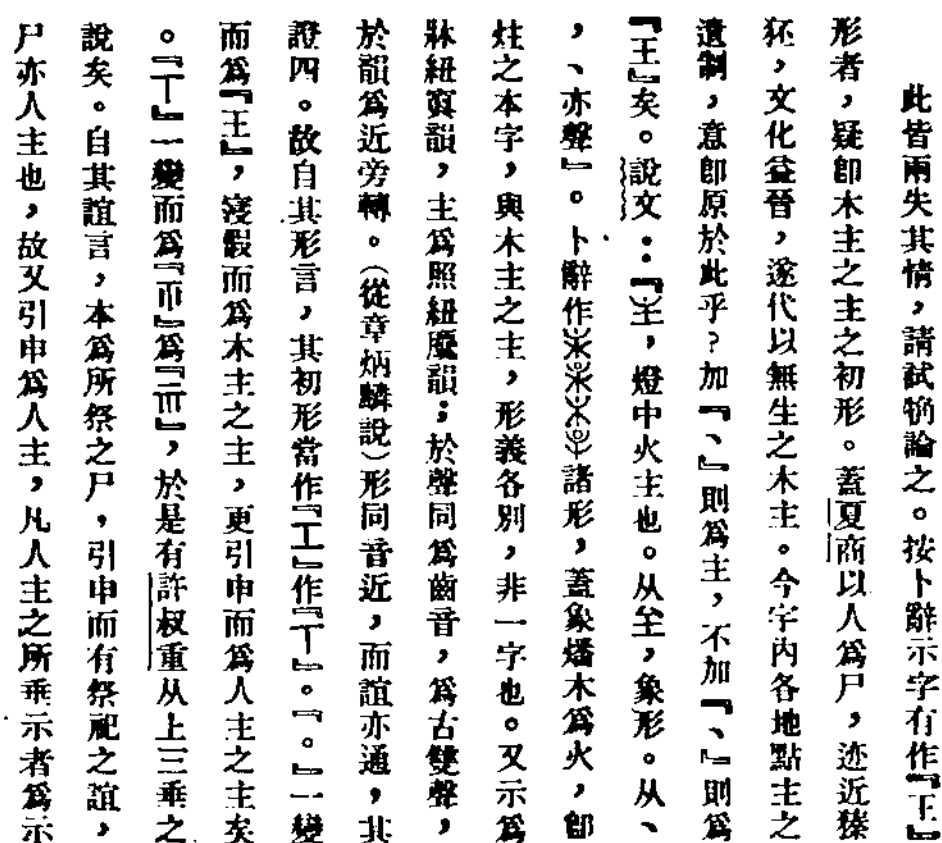 此皆兩失其情，請試猗論之。按卜辭示字有作『王』
形者，疑卽木主之主之初形。蓋夏商以人爲尸，迹近獉
狉，文化益晉，遂代以無生之木主。今宇內各地點主之
遺制，意卽原於此乎？加『、』則爲主，不加『、』則爲
『王』矣。說文：『主，燈中火主也。从𡈼，象形。从、
，、亦聲』。卜辭作諸形，蓋象燔木爲火，卽
炷之本字，與木主之主，形義各別，非一字也。又示爲
牀紐寘韻，主爲照紐麌韻；於聲同爲齒音，爲古雙聲，
於韻爲近旁轉。（從章炳麟說）形同音近，而誼亦通，其
證四。故自其形言，其初形當作『工』作『丅』。『。』一變
而爲『王』，寖假而爲木主之主，更引申而爲人主之主矣
。『丅』一變而爲『帀』爲『示』，於是有許叔重从上三垂之
說矣。自其誼言，本爲所祭之尸，引申而有祭祀之誼，
尸亦人主也，故又引申爲人主，凡人主之所垂示者爲示